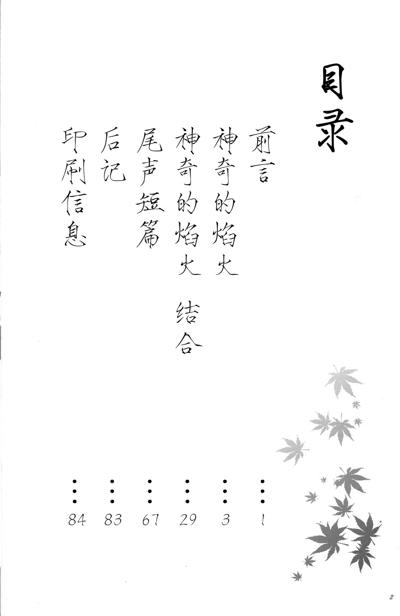 目录
前言 ⋮ 1
神奇的焰火 ⋮ 3
神奇的焰火 结合 ⋮ 29
尾声短篇 ⋮ 67
后记 ⋮ 83
印刷信息 ⋮ 84
2